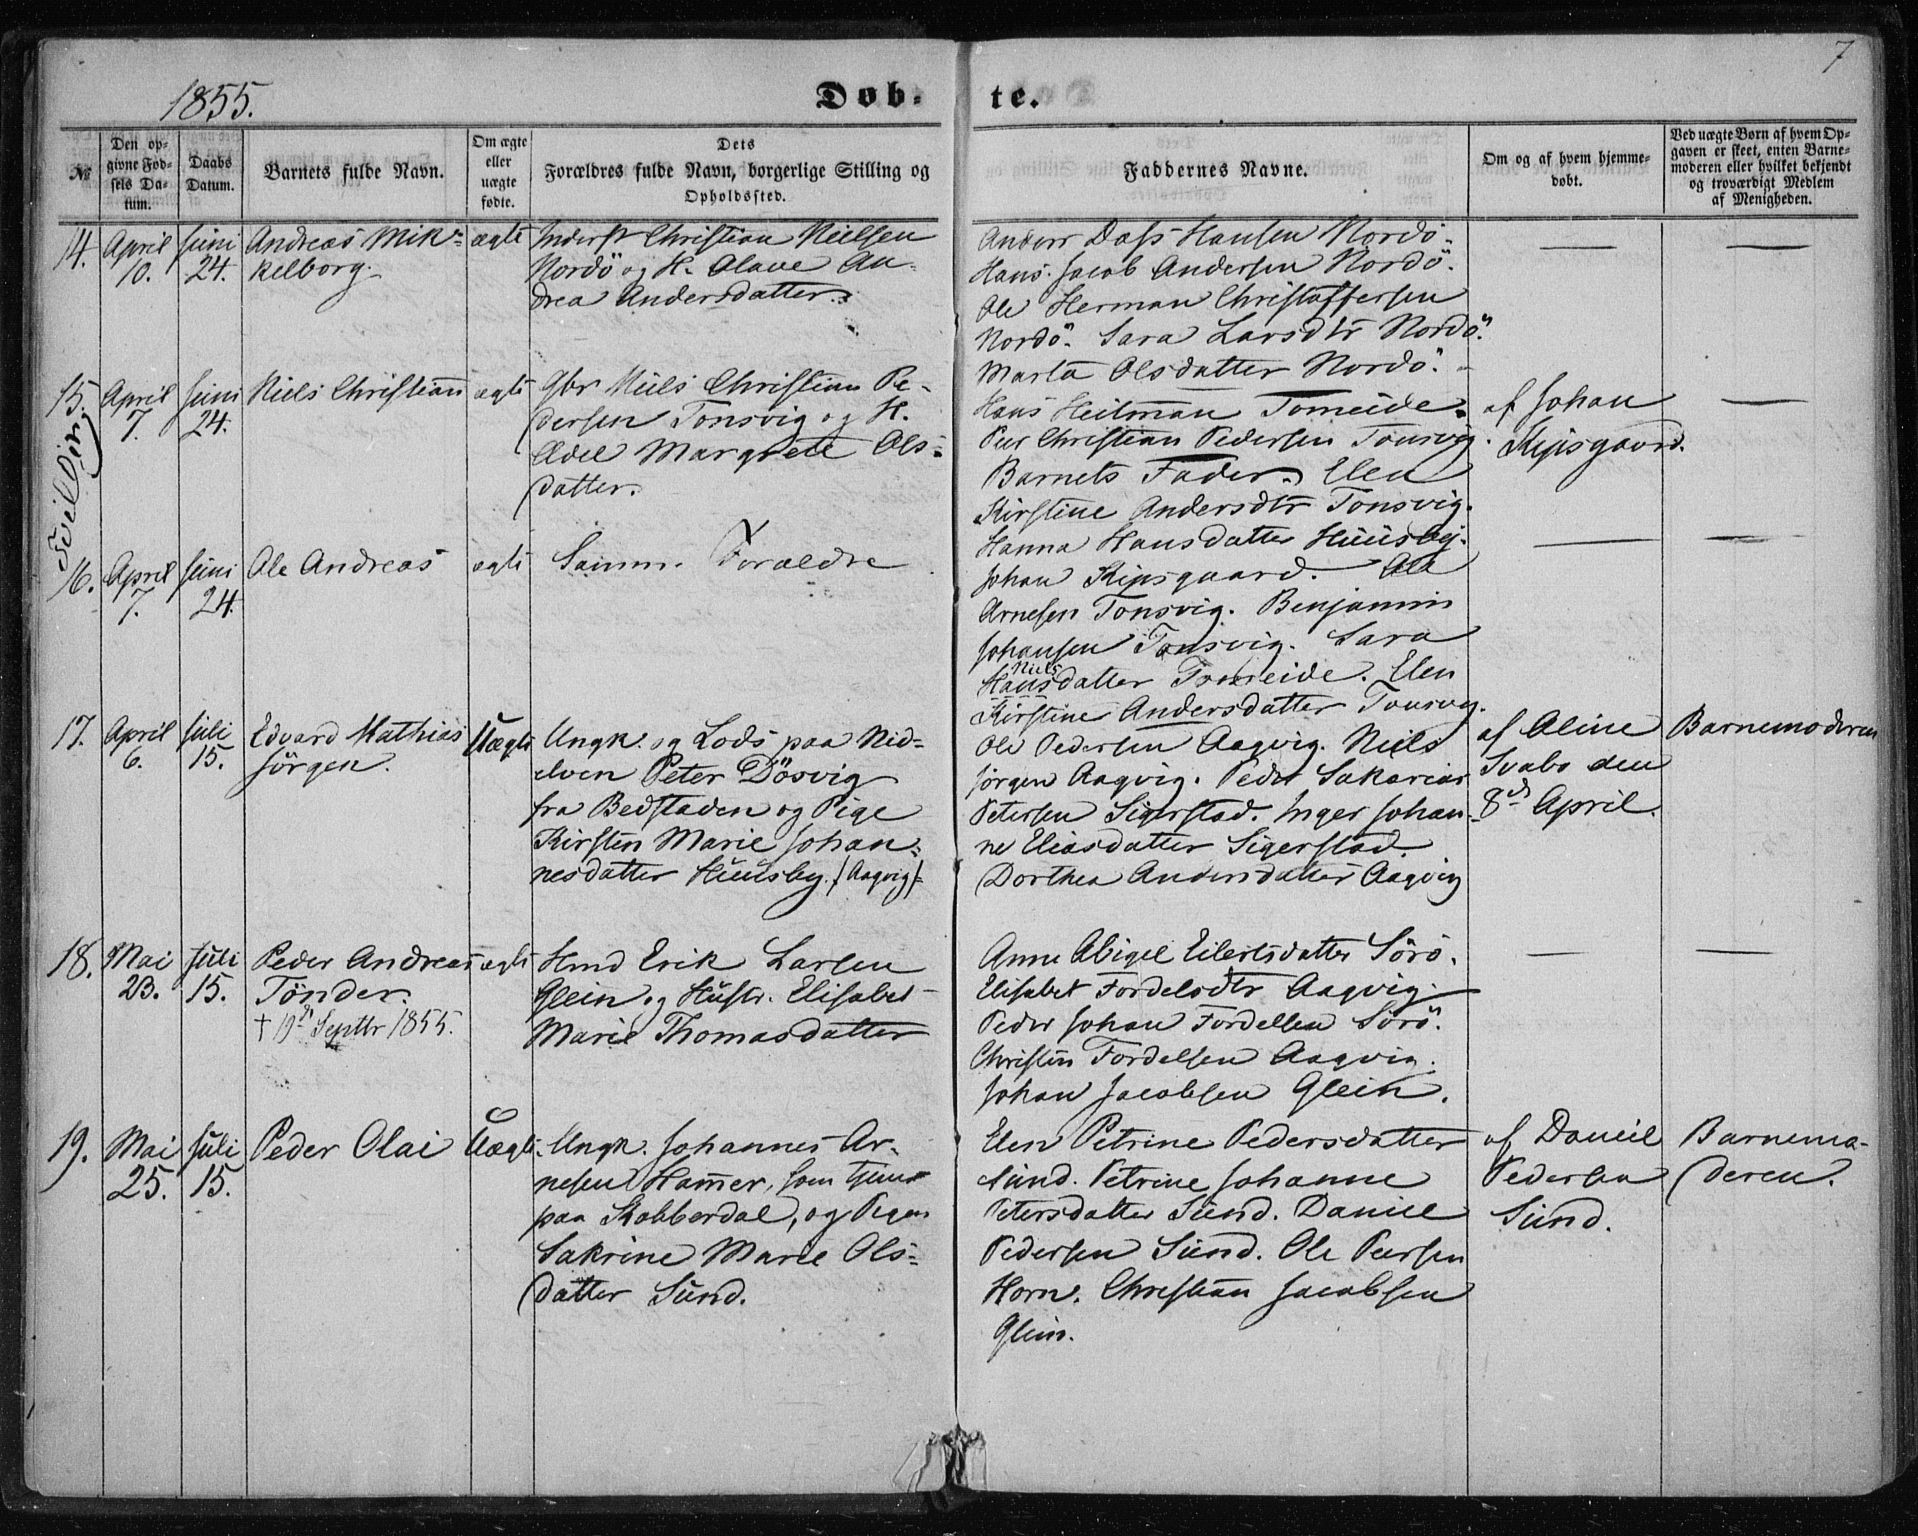 1855.
Døb-
te.
7
№
Den op-
givne Fød-
sels Da-
tum.
Daabs
Datum.
Barnets fulde Navn.
Om ægte
eller
uægte
fødte.
Dets
Forældres fulde Navn, borgerlige Stilling og
Opholdssted.
Faddernes Navne.
Om og af hvem hjemme-
døbt.
Ved uægte Børn af hvem Op-
gaven er skeet, enten Barne-
moderen eller hvilket bekjendt
og troværdigt Medlem
af Menigheden.
14.
April
10.
Juni
24.
Andreas Mik-
kelborg.
ægte
Inderst Christian Nielsen
Nordö og H. Olave An-
drea Andersdatter.
Anders Dass Hansen Nordö.
Hans Jacob Andersen Nordö.
Ole Herman Christoffersen
Nordö. Sara Larsdtr Nordö.
Marta Olsdatter Nordö.
15.
Tvilling
April
7.
Juni
24.
Niels Christian
ægte
Gbr Niels Christian Pe-
dersen Tonsvig og H.
Adel Margrete Ols-
datter.
Hans Heitman Tomeide.
Peer Christian Pedersen Tonsvig.
Barnets Fader. Elen
Kirstine Andersdtr Tonsvig.
Hanna Hansdatter Huusby.
af Johan
Kipsgaard.
16.
April
7.
Juni
24.
Ole Andreas
ægte
Samm. Forældre
Johan Kipsgaard. Ole
Arnesen Tonsvig. Benjamin
Johansen Tonsvig. Sara
Niels
Hansdatter Tomeide. Elen
Kirstine Andersdatter Tonsvig.
17.
April
6.
Juli
15.
Edvard Mathias
Jörgen.
Uægte
Ungk. og Lods paa Nid-
elven Peter Dösvig
fra Bedstaden og Pige
Kirsten Marie Johan-
nesdatter Huusby. /Aagvig/
Ole Pedersen Aagvig. Niels
Jörgen Aagvig. Peder Sakarias
Petersen Sigerstad. Inger Johan-
ne Eliasdatter Sigerstad.
Dorthea Andersdatter Aagvig
af Oline
Svabo den
8de April.
Barnemoderen
18.
Mai
23.
Juli
15.
Peder Andreas
Tönder.
† 19de Septbr 1855.
ægte
Hmd Erik Larsen
Glein og Hustr. Elisabet
Marie Thomasdatter
Anne Abigel Eilertsdatter Sörö.
Elisabet Fordelsdtr Aagvig.
Peder Johan Fordelsen Sörö.
Christen Fordelsen Aagvig.
Johan Jacobsen Glein.
19.
Mai
25.
Juli
15.
Peder Olai
Uægte.
Ungk. Johannes Ar-
nesen Hamer, som tjener
paa Kobberdal, og Pigen
Sakrine Marie Ols-
datter Sund.
Elen Petrine Pedersdatter
Sund. Petrine Johanne
Petersdatter Sund. Daniel
Pedersen Sund. Ole Peersen
Horn. Christian Jacobsen
Glein.
af Daniel
Pedersen
Sund.
Barnemo-
deren.